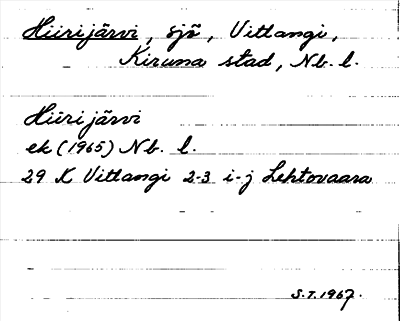 Hiirijärvi, sjö, Vittangi,
Kiruna stad, Nb. l.
Hiirijärvi
ek (1965) Nb. l.
29 K Vittangi 2-3 i-j Lehtovaara
S.T. 1967.